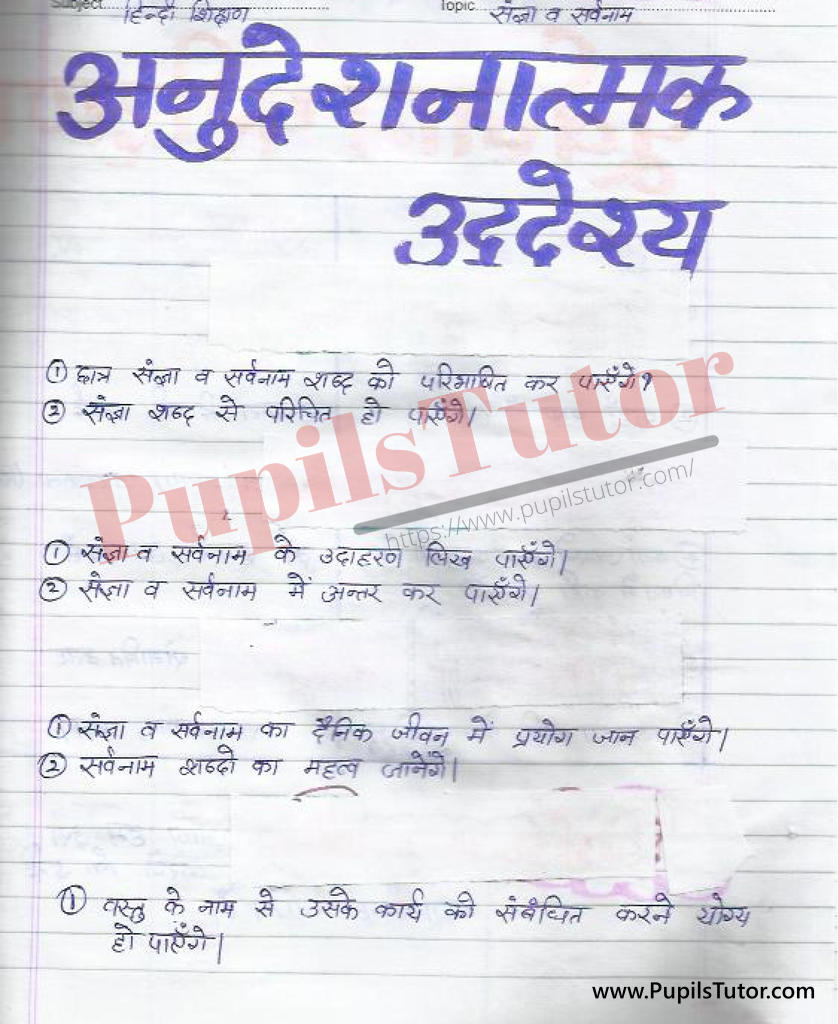 Subject हिन्दी शिक्षण Topic संज्ञा व सर्वनाम
अनुदेशनात्मक
उद्रदेश्य
① छात्र संज्ञा व सर्वनाम शब्द को परिभाषित कर पाएँगे?
② संज्ञा शब्द से परिचित हो पाएँगे।
PupilsTutor
https://www.pupilstutor.com/
① संज्ञा व सर्वनाम के उदाहरण लिख पाएँगे।
② संज्ञा व सर्वनाम में अन्तर कर पाएँगे।
① संज्ञा व सर्वनाम का दैनिक जीवन में प्रयोग जान पाएँगे।
② सर्वनाम शब्दो का महत्व जानेंगे।
① वस्तु के नाम से उसके कार्य को संबंधित करने योग्य
हो पाएँगे।
www.PupilsTutor.com